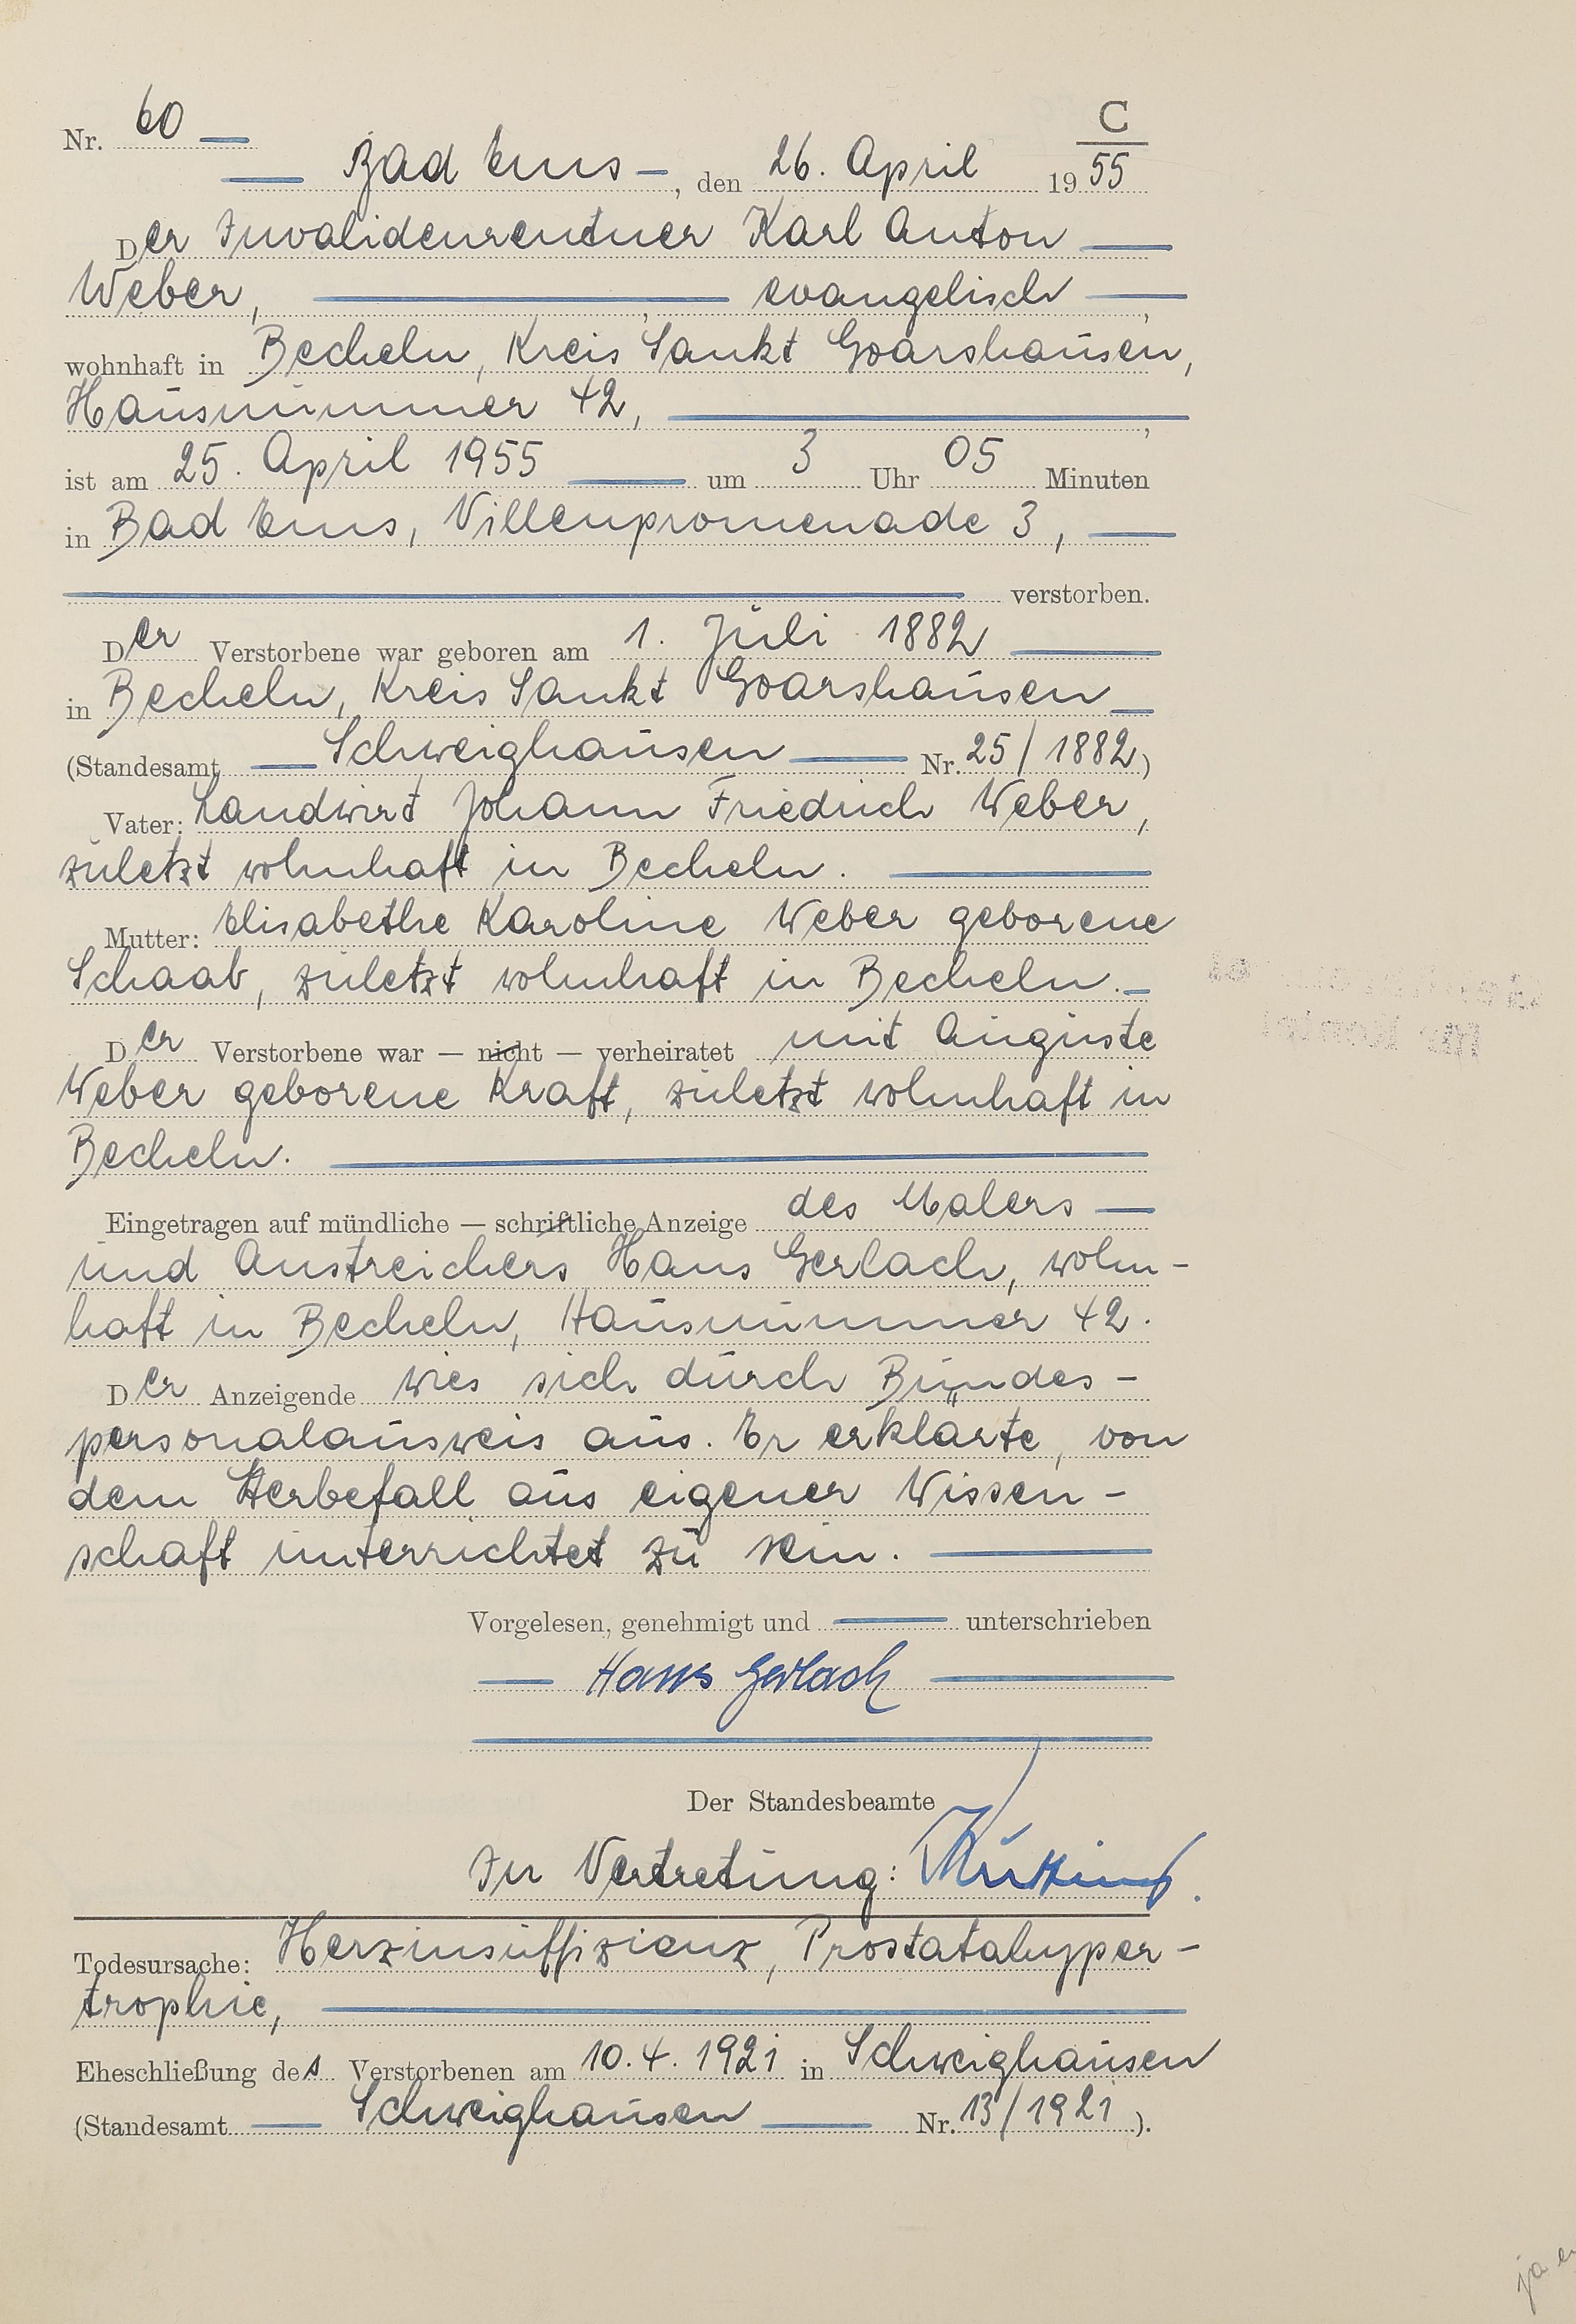 C
Nr. 60
Bad Ems, den 26. April 1955
Der Invalidenrentner Karl Anton
Weber, evangelisch,
wohnhaft in Becheln, Kreis Sankt Goarshausen,
Hausnummer 42,
ist am 25. April 1955 um 3 Uhr 05 Minuten
in Bad Ems, Villenpromenade 3,
verstorben.
Der Verstorbene war geboren am 1. Juli 1882
in Becheln, Kreis Sankt Goarshausen
(Standesamt Schweighausen Nr. 25/1882)
Vater: Landwirt Johann Friedrich Weber,
zuletzt wohnhaft in Becheln.
Mutter: Elisabethe Karoline Weber geborene
Schaab, zuletzt wohnhaft in Becheln.
Der Verstorbene war — nicht — verheiratet mit Auguste
Weber geborene Kraft, zuletzt wohnhaft in
Becheln.
Eingetragen auf mündliche — schriftliche Anzeige des Malers
und Anstreichers Hans Gerlach, wohn-
haft in Becheln, Hausnummer 42.
Der Anzeigende wies sich durch Bundes-
personalausweis aus. Er erklärte, von
dem Sterbefall aus eigener Wissen-
schaft unterrichtet zu sein.
Vorgelesen, genehmigt und unterschrieben
Hans Gerlach
Der Standesbeamte
In Vertretung:
Todesursache: Herzinsuffizienz, Prostatahyper-
trophie,
Eheschließung des Verstorbenen am 10.4.1921 in Schweighausen
(Standesamt Schweighausen Nr. 13/1921).
ja